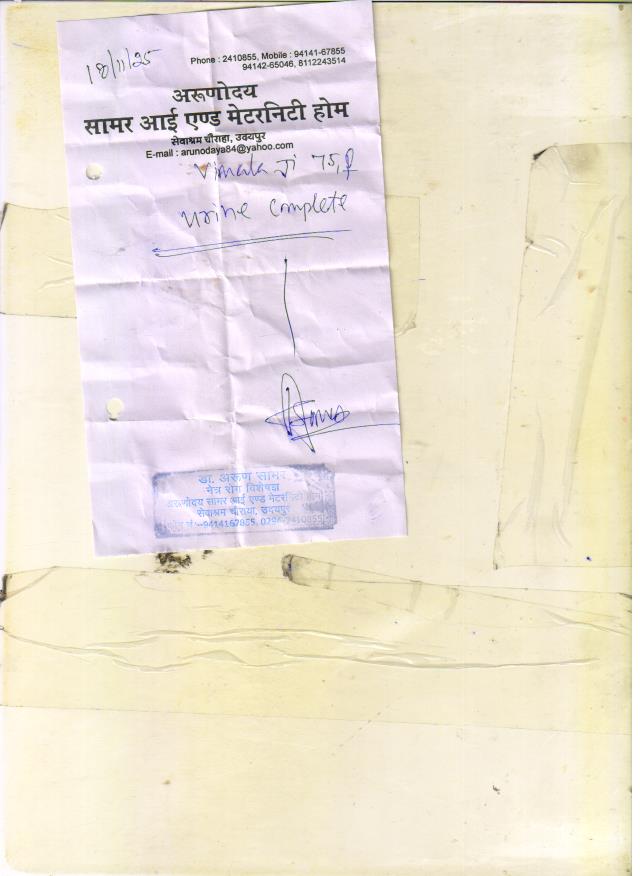 18/11/25
Phone : 2410855, Mobile : 94141-67855
94142-65046, 8112243514
अरूणोदय
सामर आई एण्ड मेटरनिटी होम
सेवाश्रम चौराहा, उदयपुर
E-mail : arunodaya84@yahoo.com
Vimala Ji 75, f
Urine complete
डा. अरूण सामर
नेत्र रोग विशेषज्ञ
अरूणोदय सामर आई एण्ड मेटरनिटी होम
सेवाश्रम चौराया, उदयपुर
9414167855, 0294-2410855